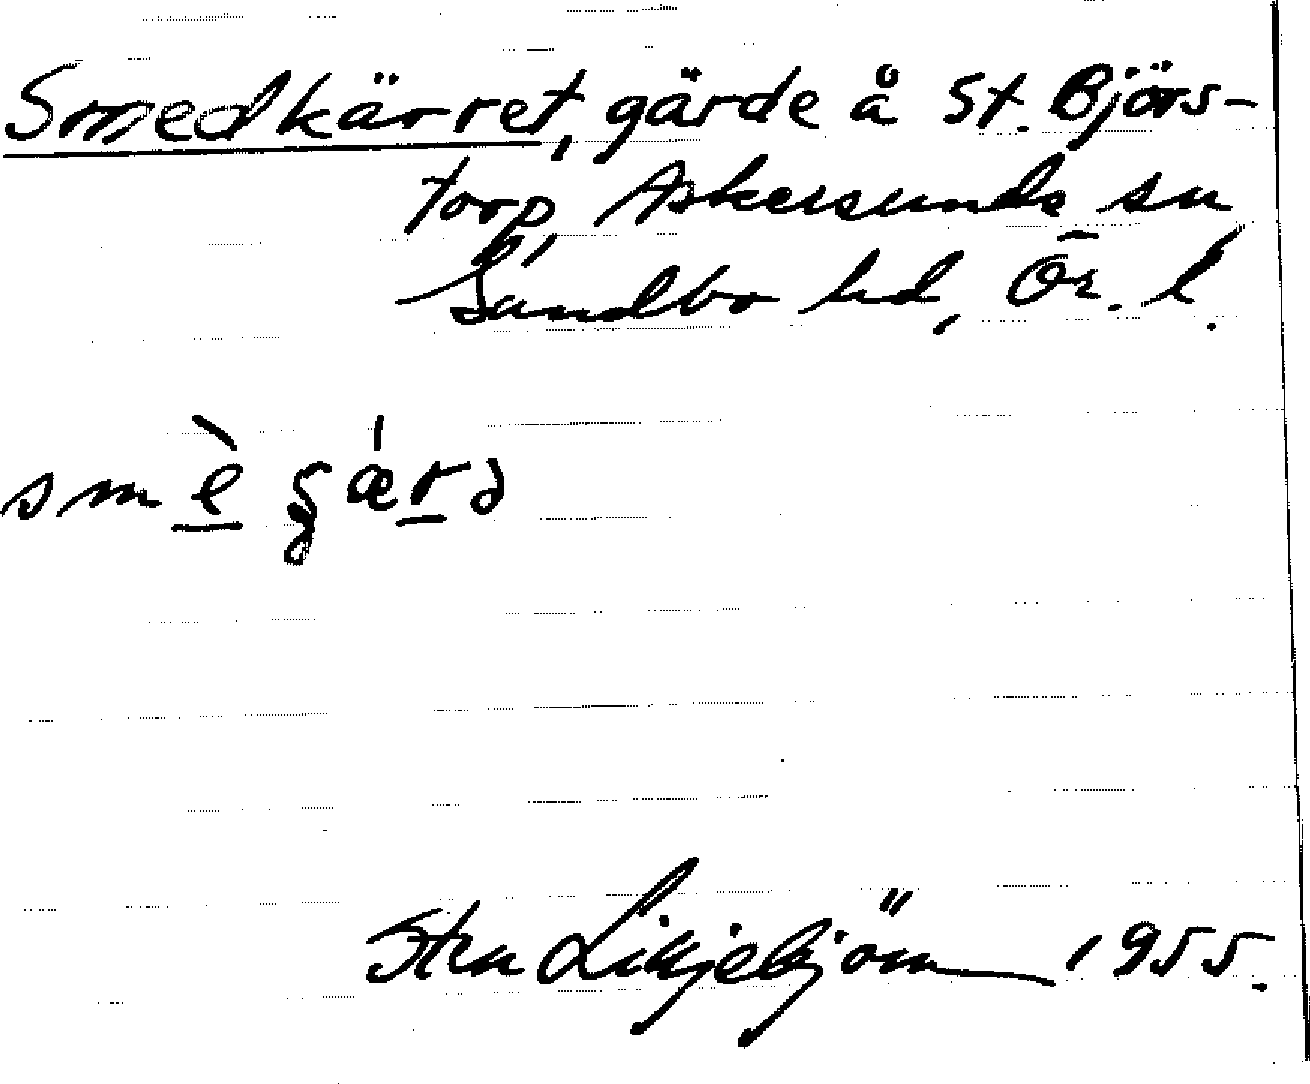 Smedkärret, gärde å St. Björs-
torp, Askersunds sn
Sundbo hd, Ör. l.
smè gǽrd
Sten Liljebjörn 1955.